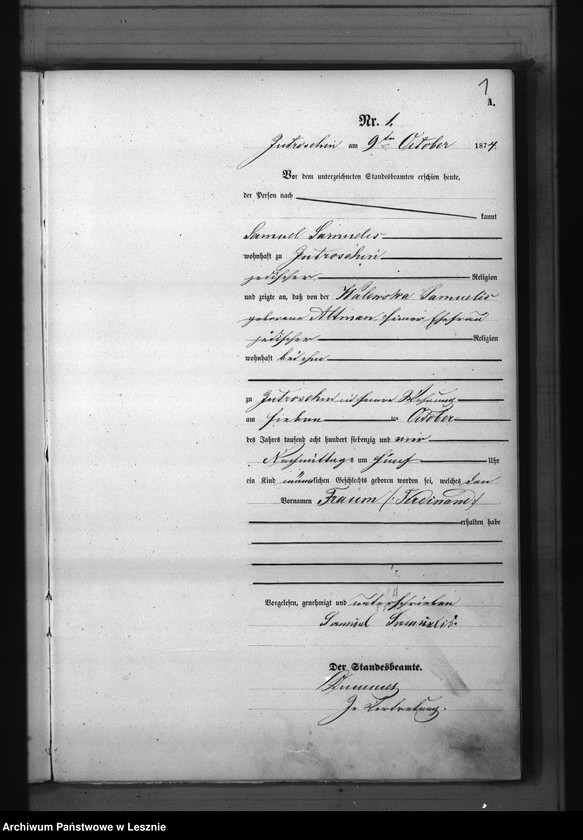 1
A.
Nr. 1.
Jutroschin am 9ten October 1874.
Vor dem unterzeichneten Standesbeamten erschien heute,
der Person nach
kannt
Samuel Samuelis
wohnhaft zu Jutroschin
jüdischer Religion
und zeigte an, daß von der Walewska Samuelis
geborene Altman seiner Ehefrau
jüdischer Religion
wohnhaft bei ihm
zu Jutroschin in seiner Wohnung
am sieben ten October
des Jahres tausend acht hundert siebenzig und vier
Nachmittags um fünf Uhr
ein Kind männlichen Geschlechts geboren worden sei, welches den
Vornamen (: Ferdinand :)
erhalten habe
Vorgelesen, genehmigt und unterschrieben
Samuel Samuelis
Der Standesbeamte.
In Vertretung.
Archiwum Państwowe w Lesznie